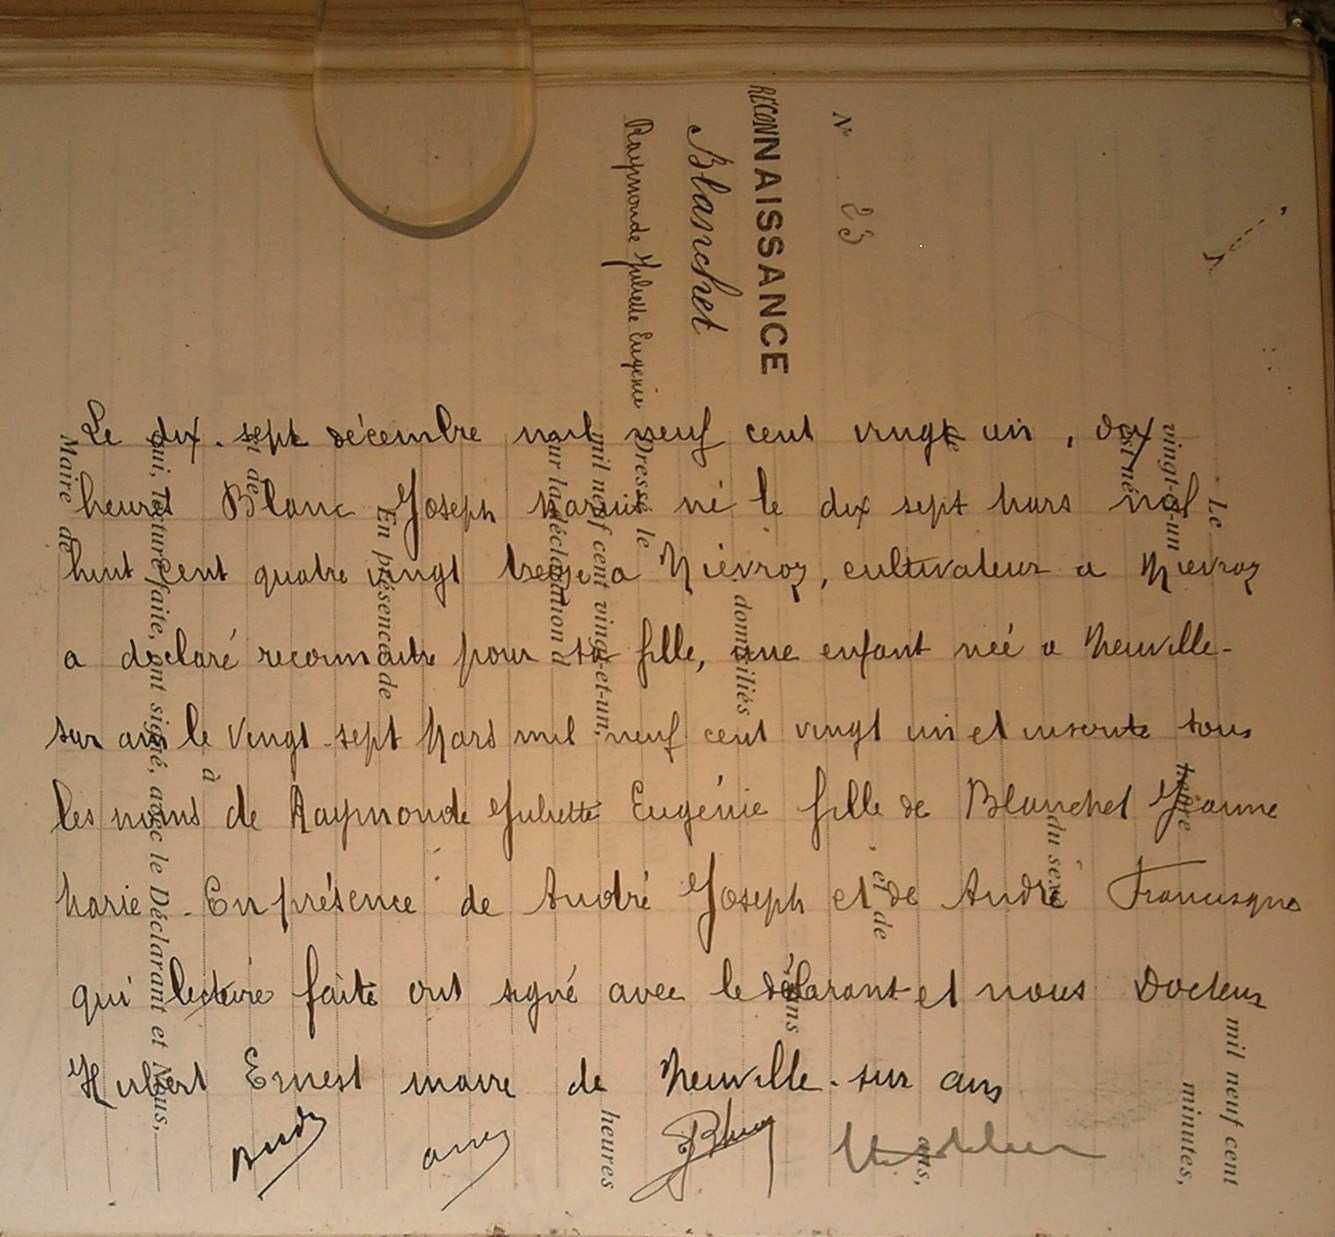 N° 23
RECONNAISSANCE
Blanchet
Raymonde Juliette Eugénie
Le dix-sept décembre mil neuf cent vingt un, dix
heures Blanc Joseph Marius né le dix sept Mars mil
huit cent quatre vingt treize a Niévroz, cultivateur a Niévroz
a déclaré reconnaitre pour sa fille, une enfant née a Neuville-
sur ain le vingt-sept Mars mil neuf cent vingt un et inscrite sous
les noms de Raymonde Juliette Eugénie fille de Blanchet Jeanne
Marie. En présence de André Joseph et de André Francisque
qui lecture faite ont signé avec le déclarant et nous Docteur
Hubert Ernest maire de Neuville-sur ain
Le mil neuf cent
vingt-et-un heure minutes,
est né
du sexe
de ans,
et de
ans
domiliés
Dressé le heures
mil neuf cent vingt-et-un,
sur la déclaration d
En présence de
et de à
qui, lecture faite, ont signé, avec le Déclarant et Nous,
Maire de